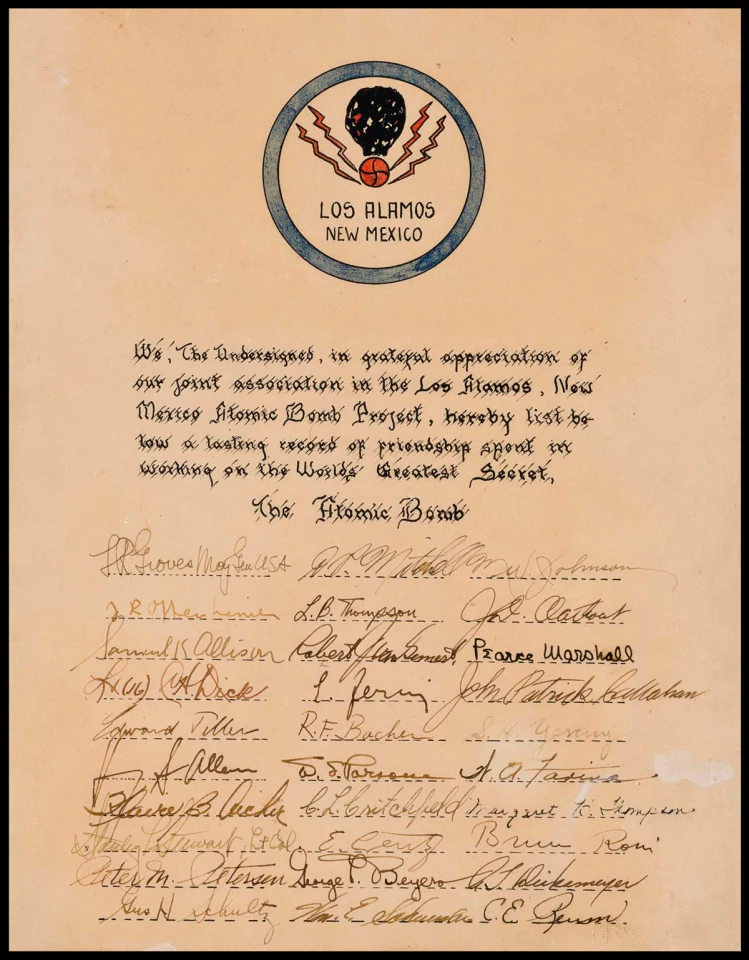 LOS ALAMOS
NEW MEXICO
We, The Undersigned, in grateful appreciation of
our joint association in the Los Alamos, New
Mexico Atomic Bomb Project, hereby list be-
low a lasting record of friendship spent in
working on the World's Greatest Secret,
The Atomic Bomb
LR Groves Maj Gen USA Johnson
J R Oppenheimer L.B. Thompson
Samuel K Allison Robert Pearce Marshall
Dick E. Fermi John Patrick Callahan
Edward Teller R.F. Bacher
Allen W. S. Parsons
Harry B. C L Critchfield Margaret H. Thompson
Stewart, Lt Col. Bruno Rossi
Peter M. Petersen George P. C. J. Diekemeyer
Gus H Schultz Wm. E. C. E.